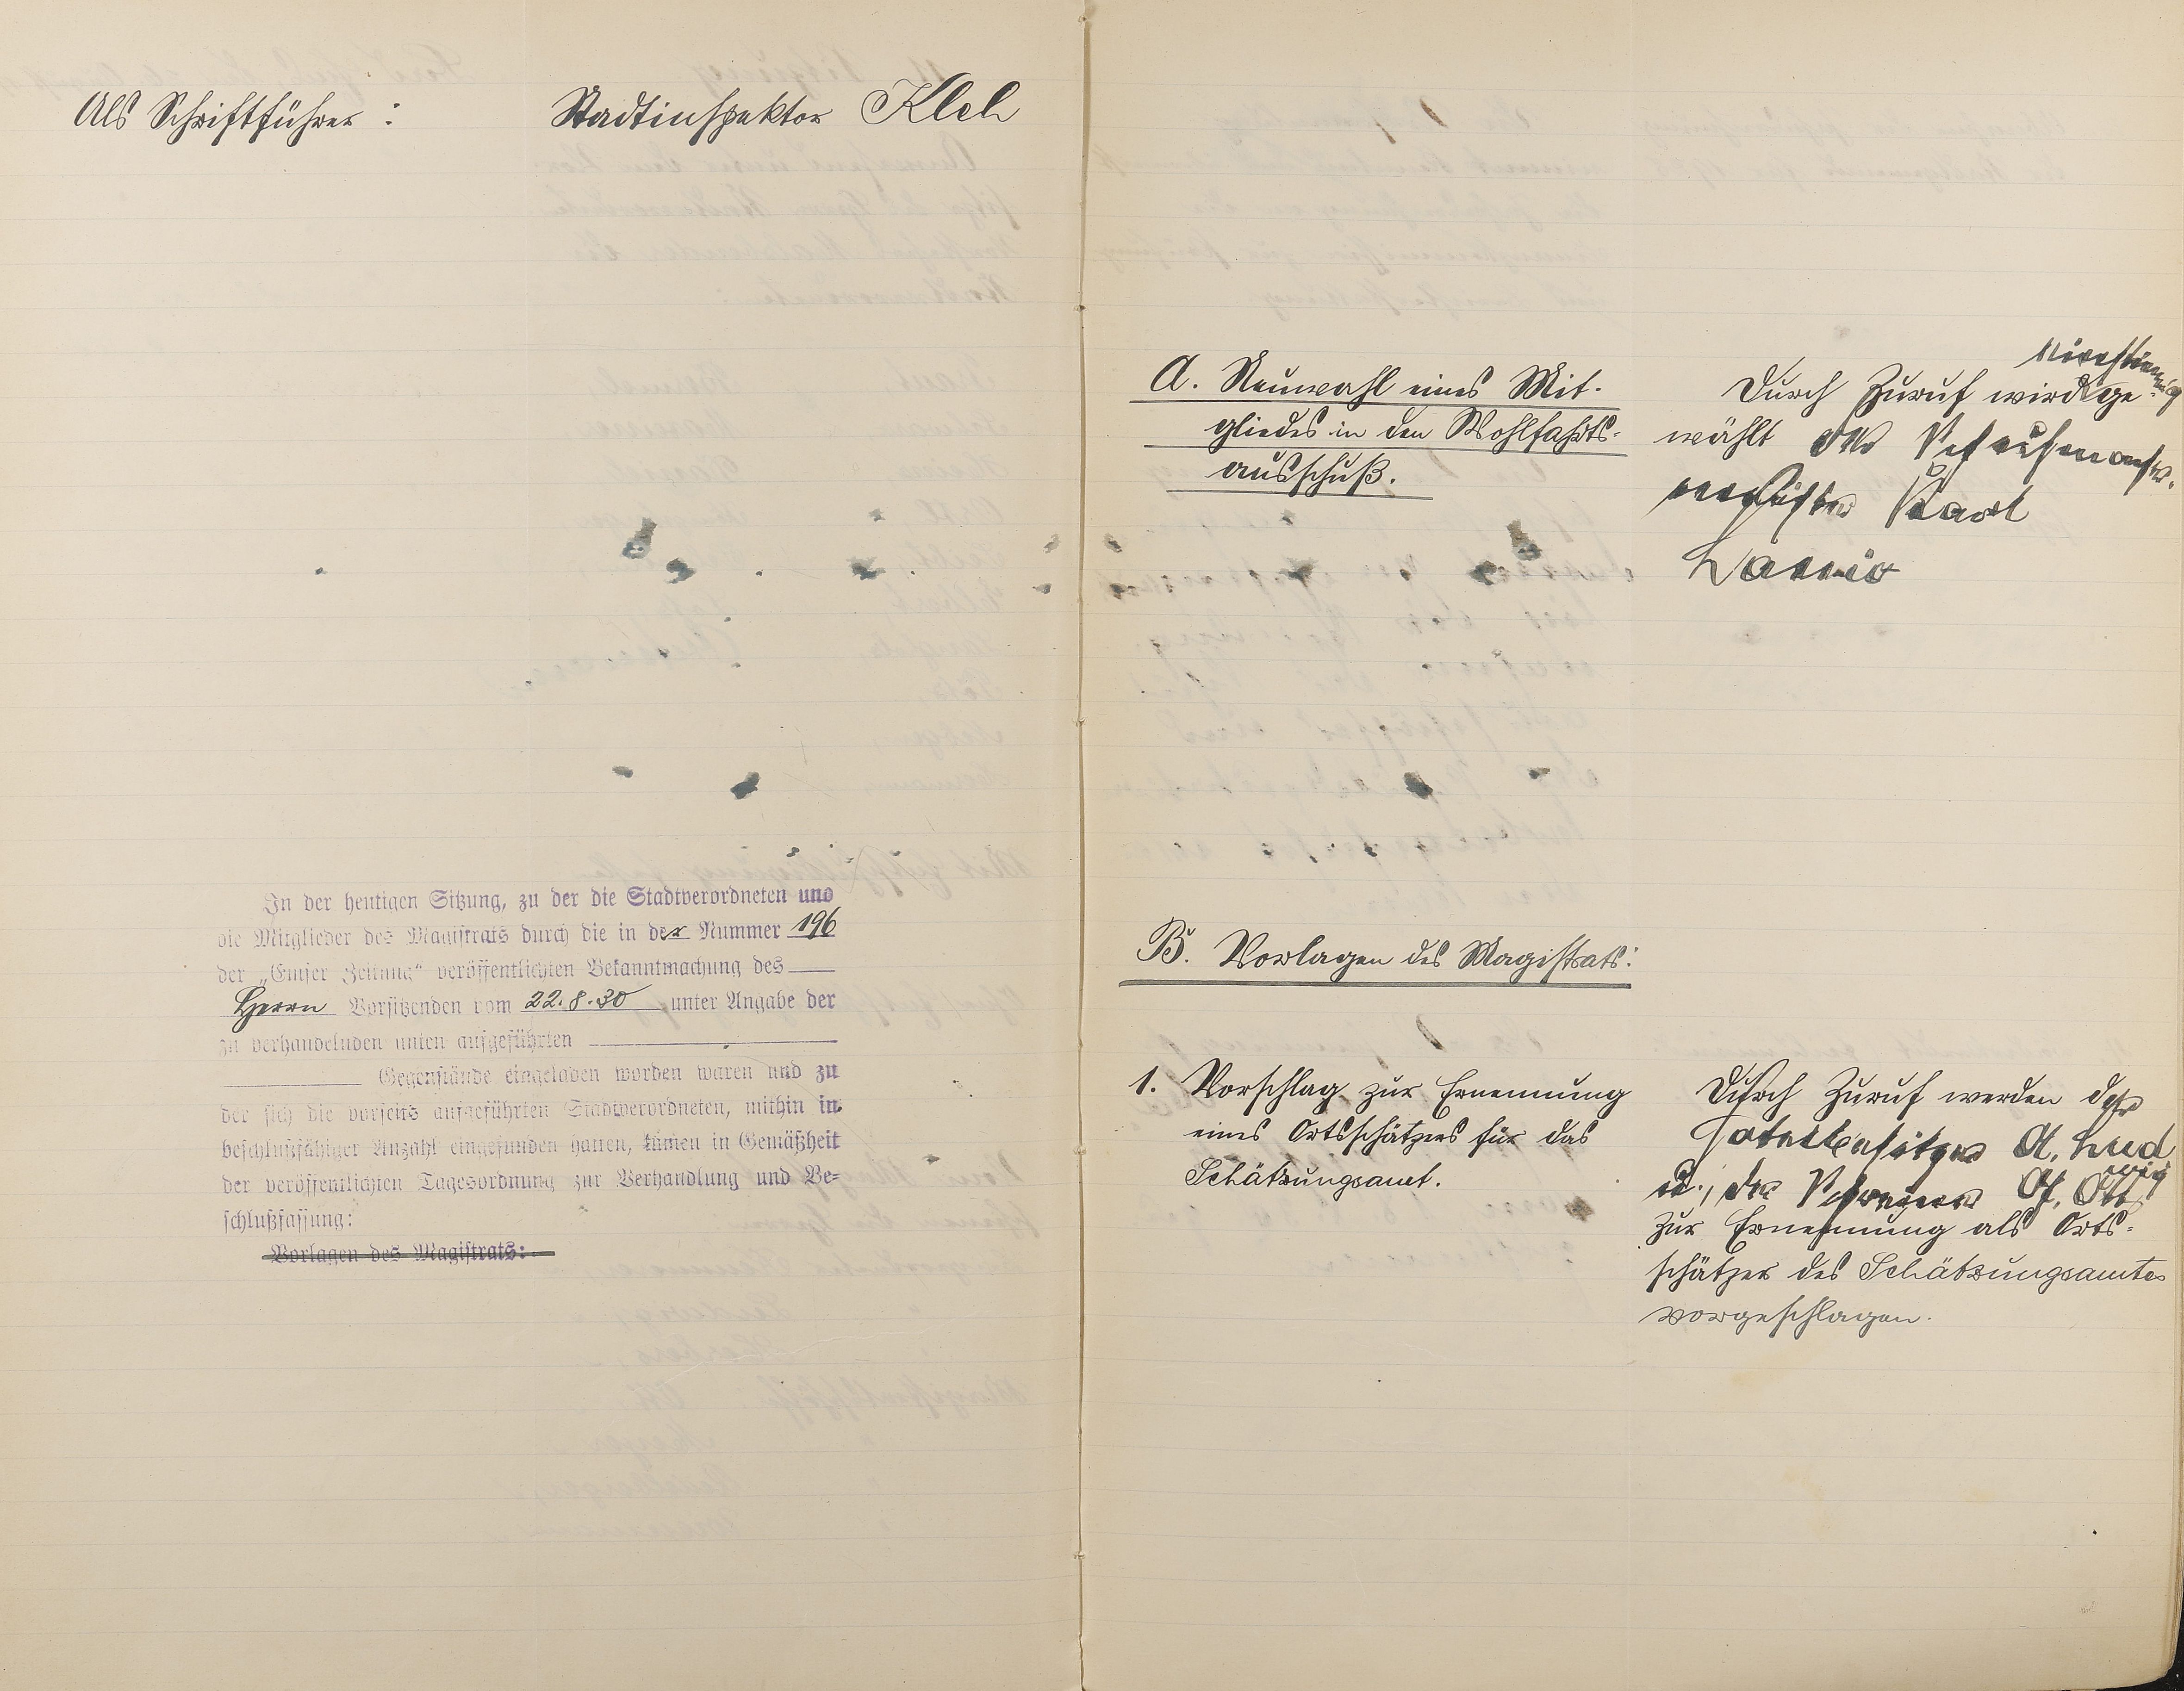 Als Schriftführer :
Stadtinspektor Kleh
In der heutigen Sitzung, zu der die Stadtverordneten und
die Mitglieder des Magistrats durch die in der Nummer 196
der „Emser Zeitung“ veröffentlichten Bekanntmachung des
Herrn Vorsitzenden vom 22.8.30 unter Angabe der
zu verhandelnden unten aufgeführten
Gegenstände eingeladen worden waren und zu
der sich die vorseits aufgeführten Stadtverordneten, mithin in
beschlußfähiger Anzahl eingefunden hatten, kamen in Gemäßheit
der veröffentlichten Tagesordnung zur Verhandlung und Be-
schlußfassung:
Vorlagen des Magistrats:
A. Neuwahl eines Mit-
gliedes in den Wohlfahrts-
ausschuß.
Durch Zuruf wird ge-
wählt der
Karl
B. Vorlagen des Magistrats:
1. Vorschlag zur Ernennung
eines Ortsschätzers für das
Schätzungsamt.
Durch Zuruf werden der
Hotelbesitzer A. Lud
wig
u. der Schreiner Ott
zur Ernennung als Orts-
schätzer des Schätzungsamtes
vorgeschlagen.